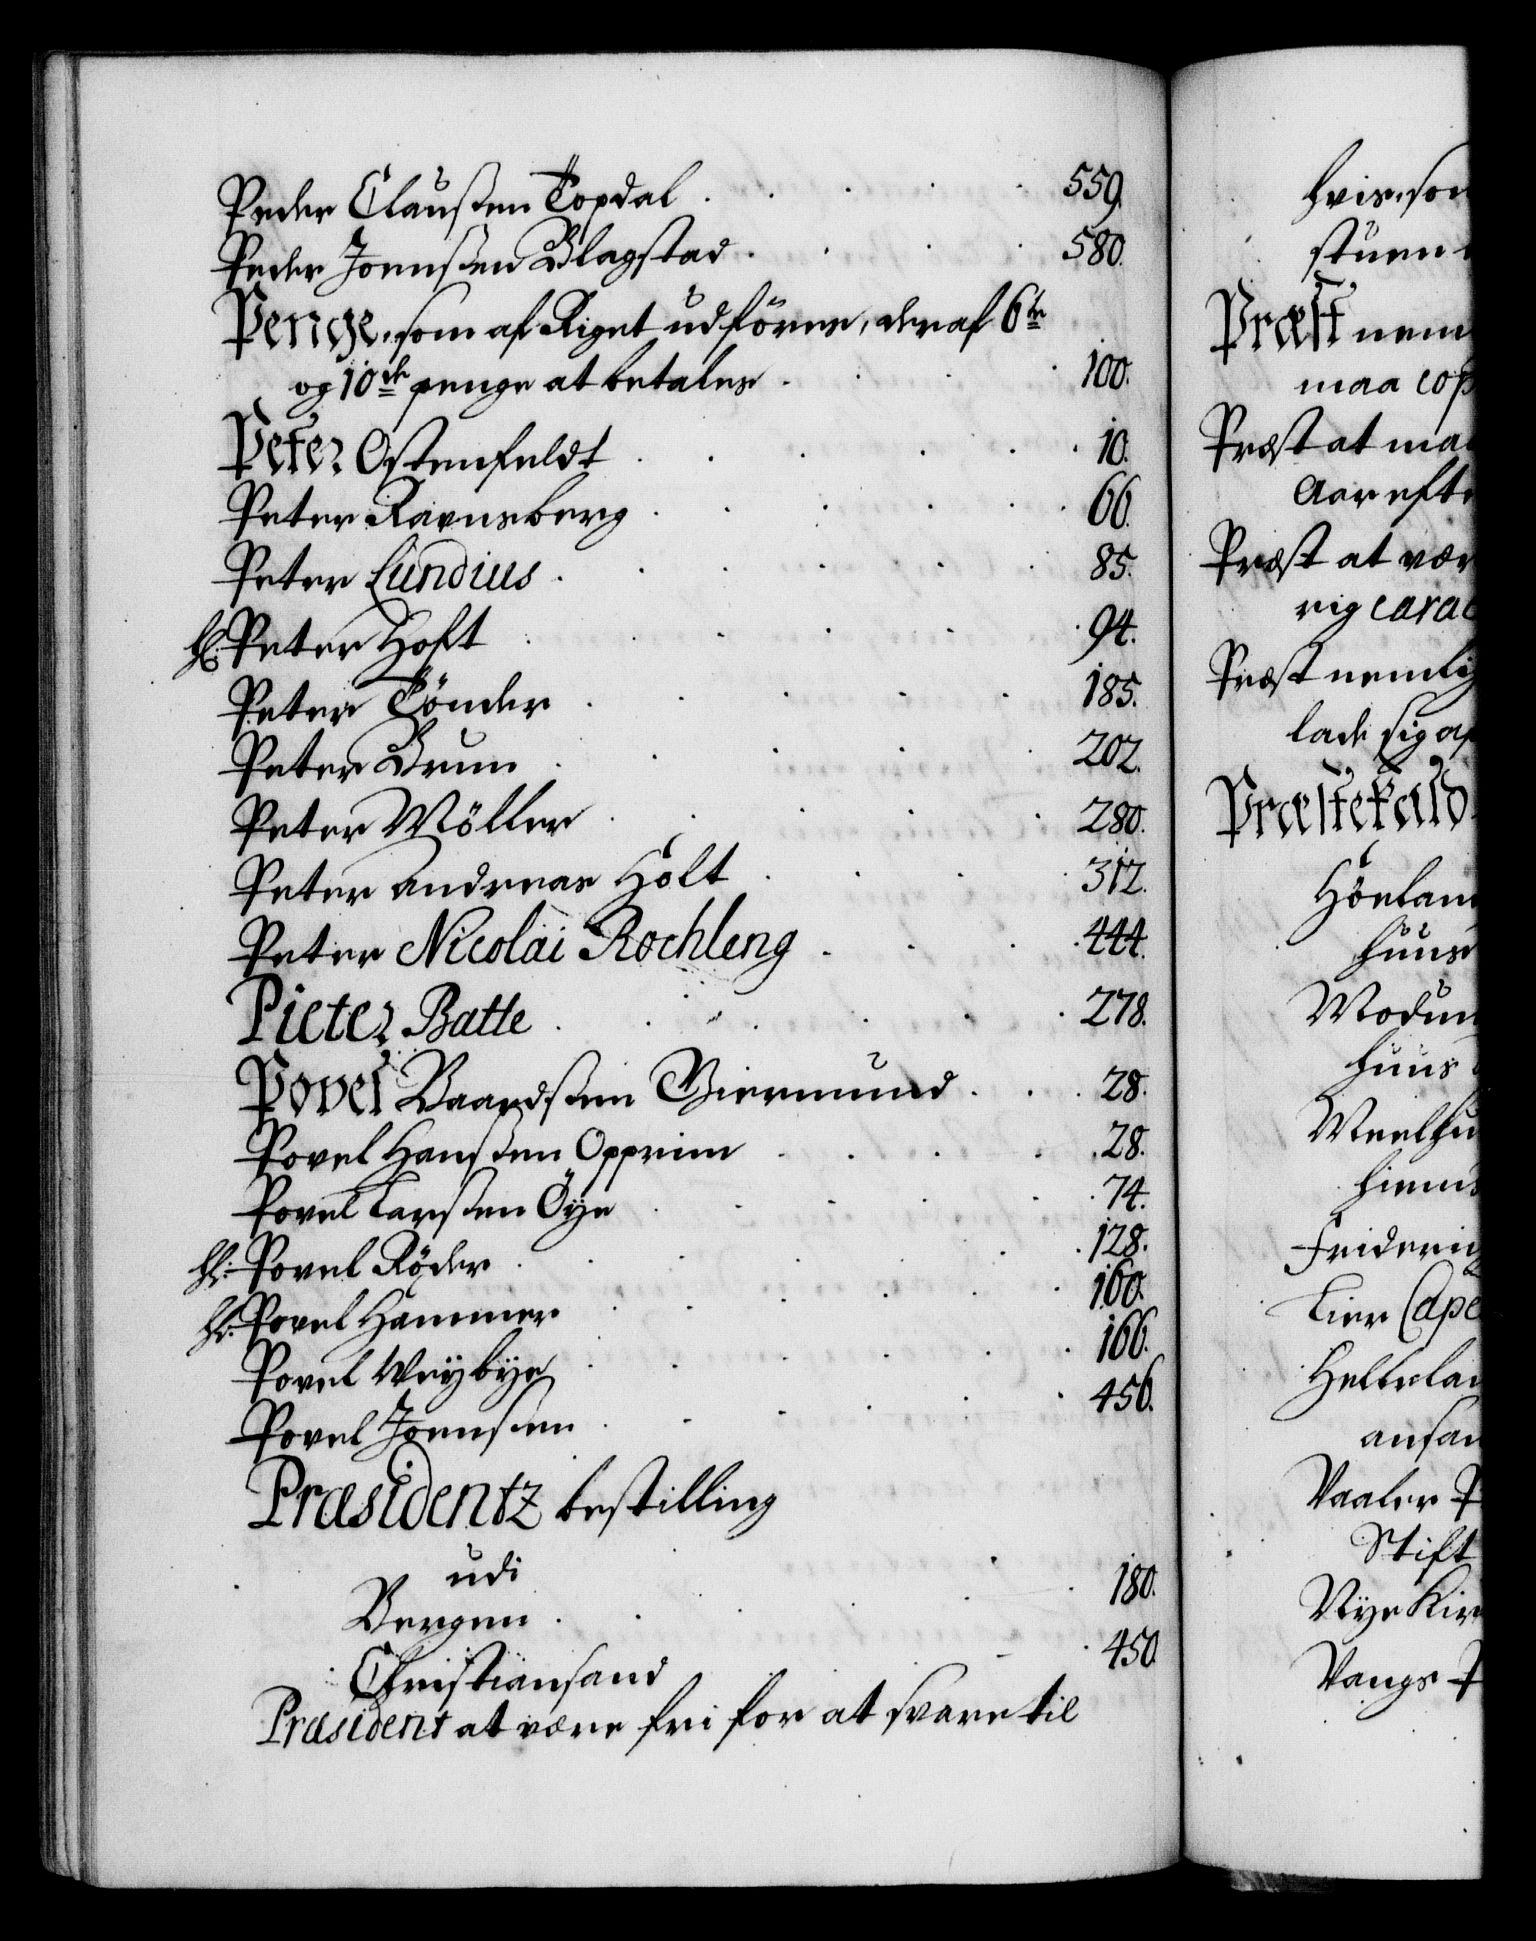 Peder Clausen Topdal . . . . 559.
Peder Joensen Blagstad . . . . 580.
Penge, som af Riget udføres, deraf 6te
og 10de penge at betales . . . . 100.
Peter Ostenfeldt . . . . . 10.
Peter Ravnsberg . . . . . 66.
Peter Lundius . . . . . 85.
Hr. Peter Hoft . . . . . 94.
Peter Tönder . . . . 185.
Peter Brun . . . . 202.
Peter Möller . . . . 280.
Peter Andreas Holt . . . . 312.
Peter Nicolai Rochleng . . . . 444.
Pieter Batte . . . . . 278.
Povel Baardsen Giermund . . . 28.
Povel Hansen Opprim . . . . 28.
Povel Larsen Öye . . . . 74.
Hr. Povel Röder . . . . . 128.
Hr. Povel Hammer . . . . . 160.
Povel Weybye . . . . . 166.
Povel Joensen . . . . . 456.
Præsidentz bestilling
udi
Bergen . . . . 180.
Christiansand . . 450
Præsident at være fri for at svare til
hvis, som
stuen
Præst nem
maa cop
Præst at ma
Aar eft
Præst at vær
rig carac
Præst nemlig
lade sig
Præstekald
Höeland
huus
Modum
huus
Meelhu
hiems
Frideric
Lier Cape
Hellelan
ansan
Vaaler P
Stift
Nye Kir
Vangs P